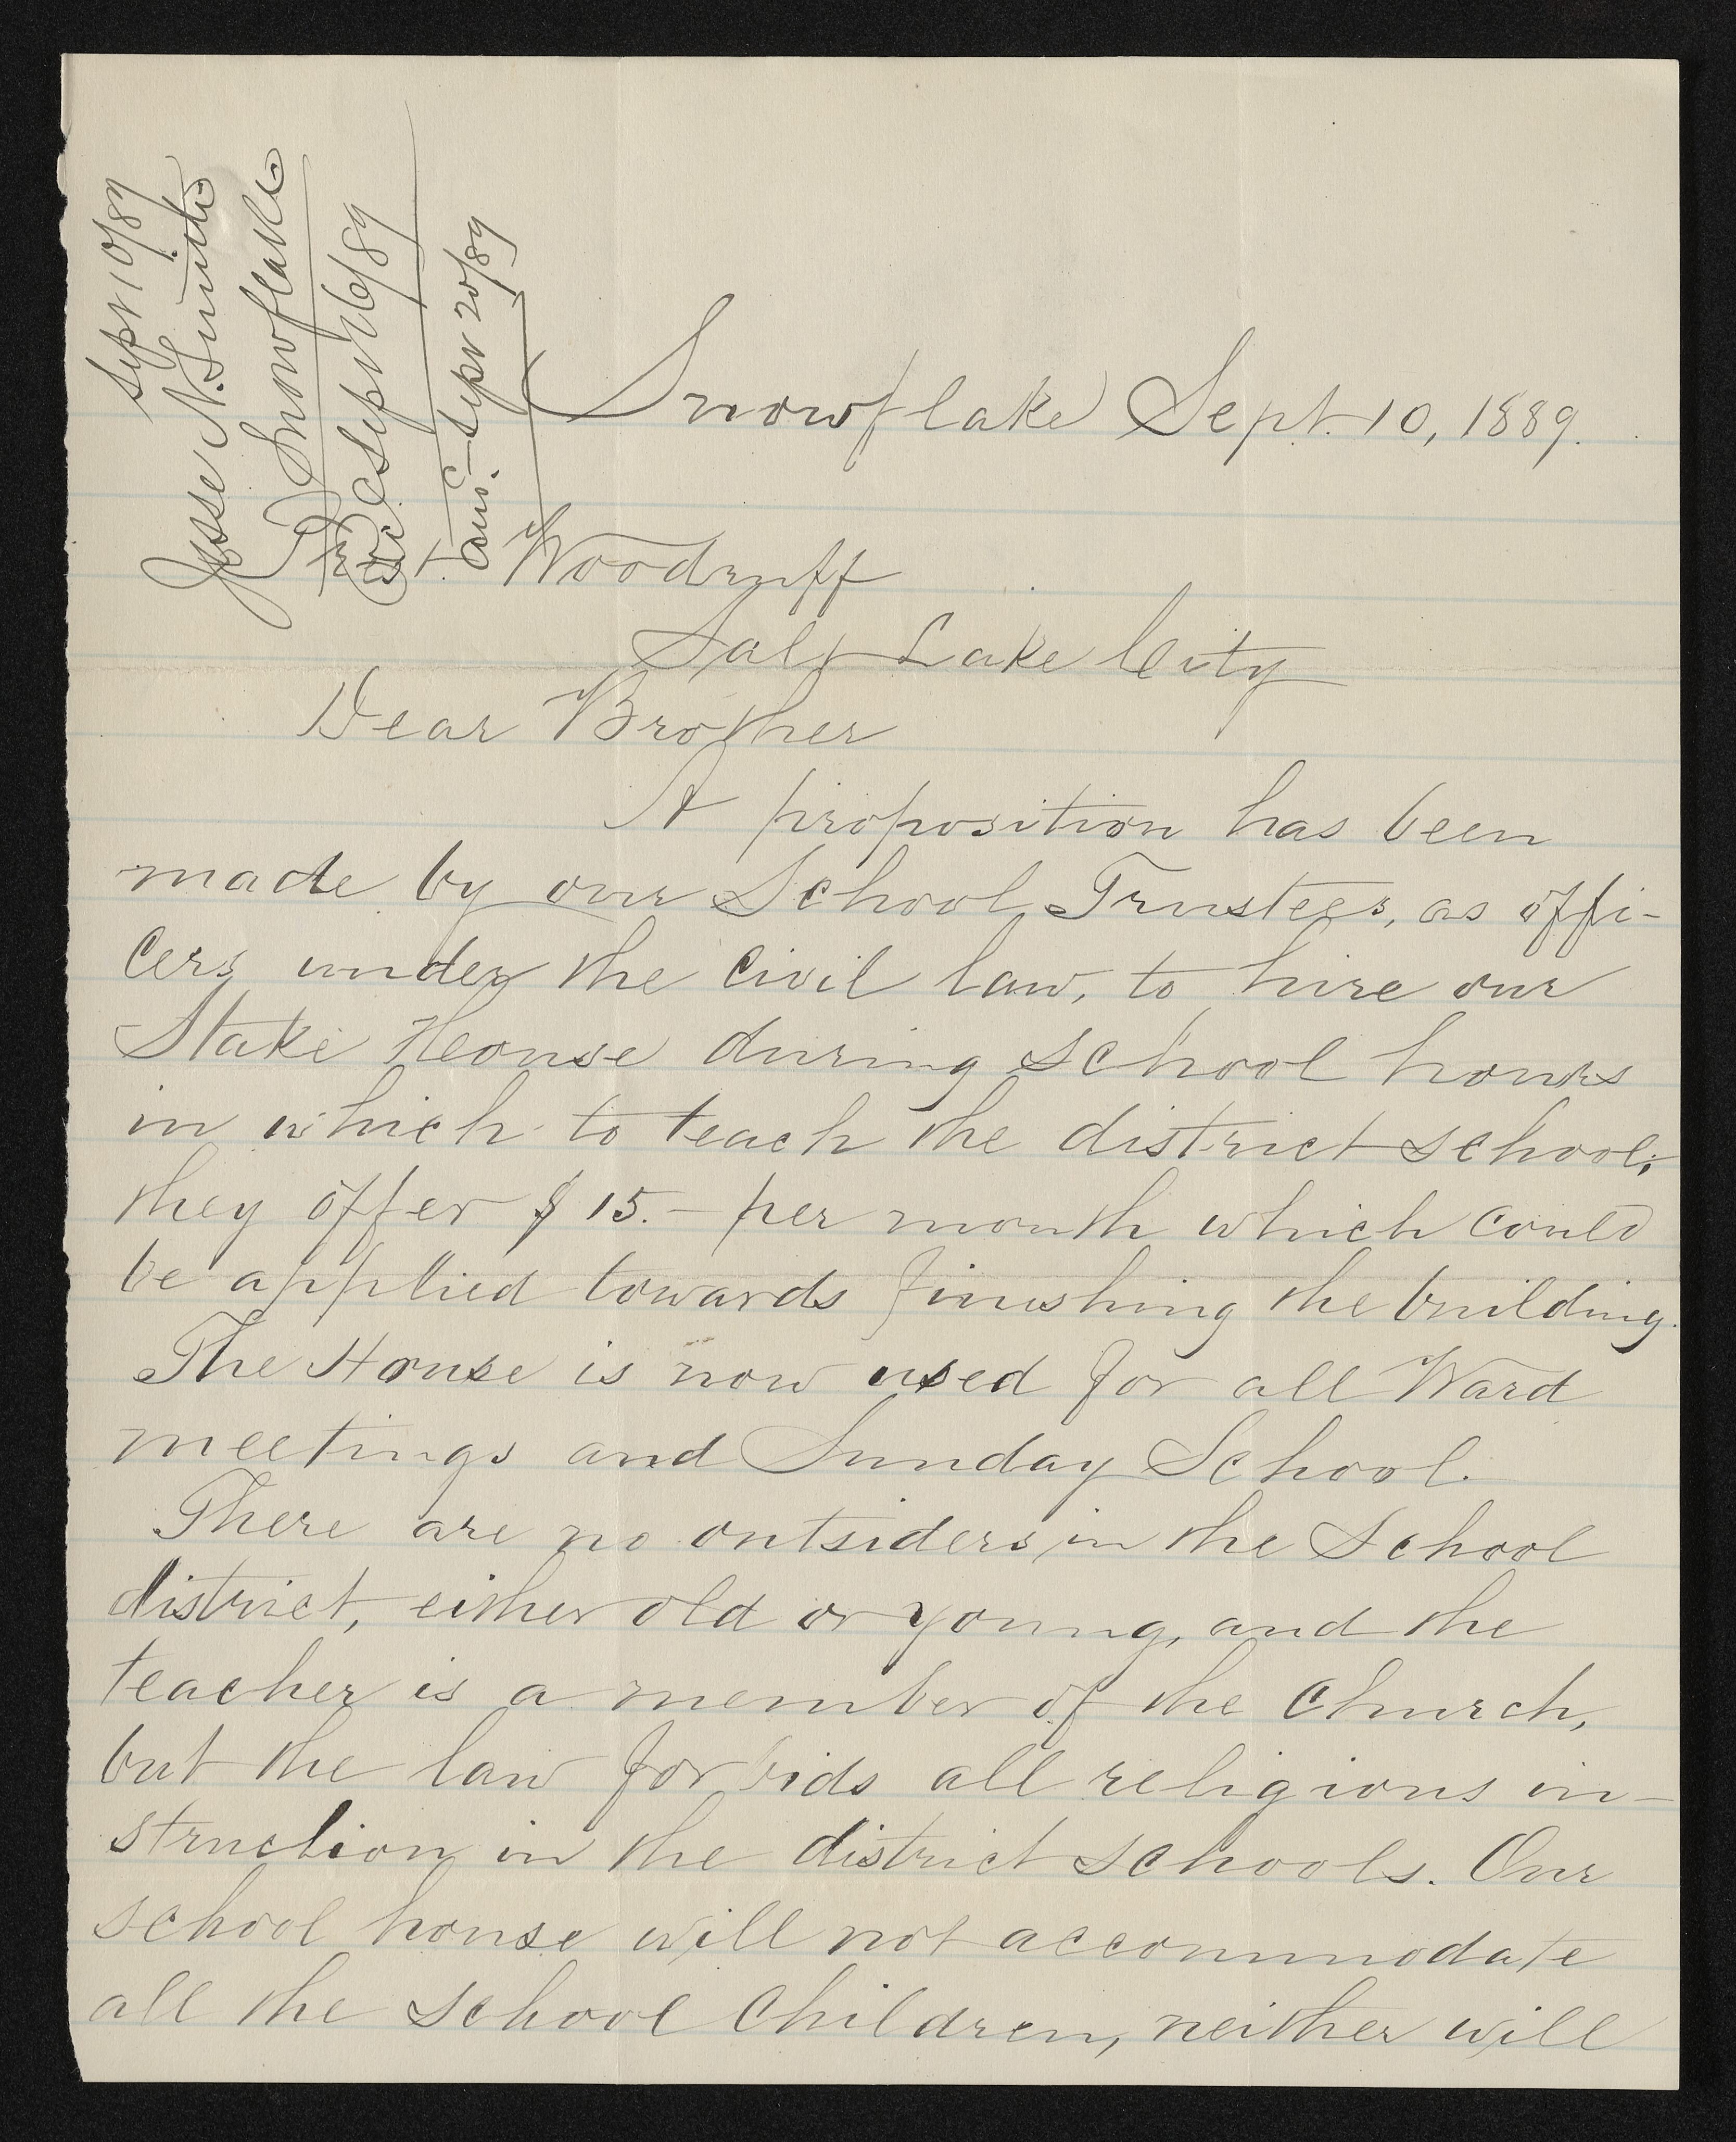 Sept 10/89
Jesse N. Smith
Snowflake
Sept 16/89
ans. Sept 20/89
Snowflake Sept. 10, 1889.
Prest. Woodruff
Salt Lake City
Dear Brother
A proposition has been
made by our School Trustees, as offi-
cers under the civil law, to hire our
Stake House during school hours
in which to teach the district school;
they offer $15.- per month which could
be applied towards finishing the building.
The House is now used for all Ward
meetings and Sunday School.
There are no outsiders in the School
district, either old or young, and the
teacher is a member of the Church,
but the law forbids all religious in-
struction in the district schools. Our
school house will not accommodate
all the school children, neither will